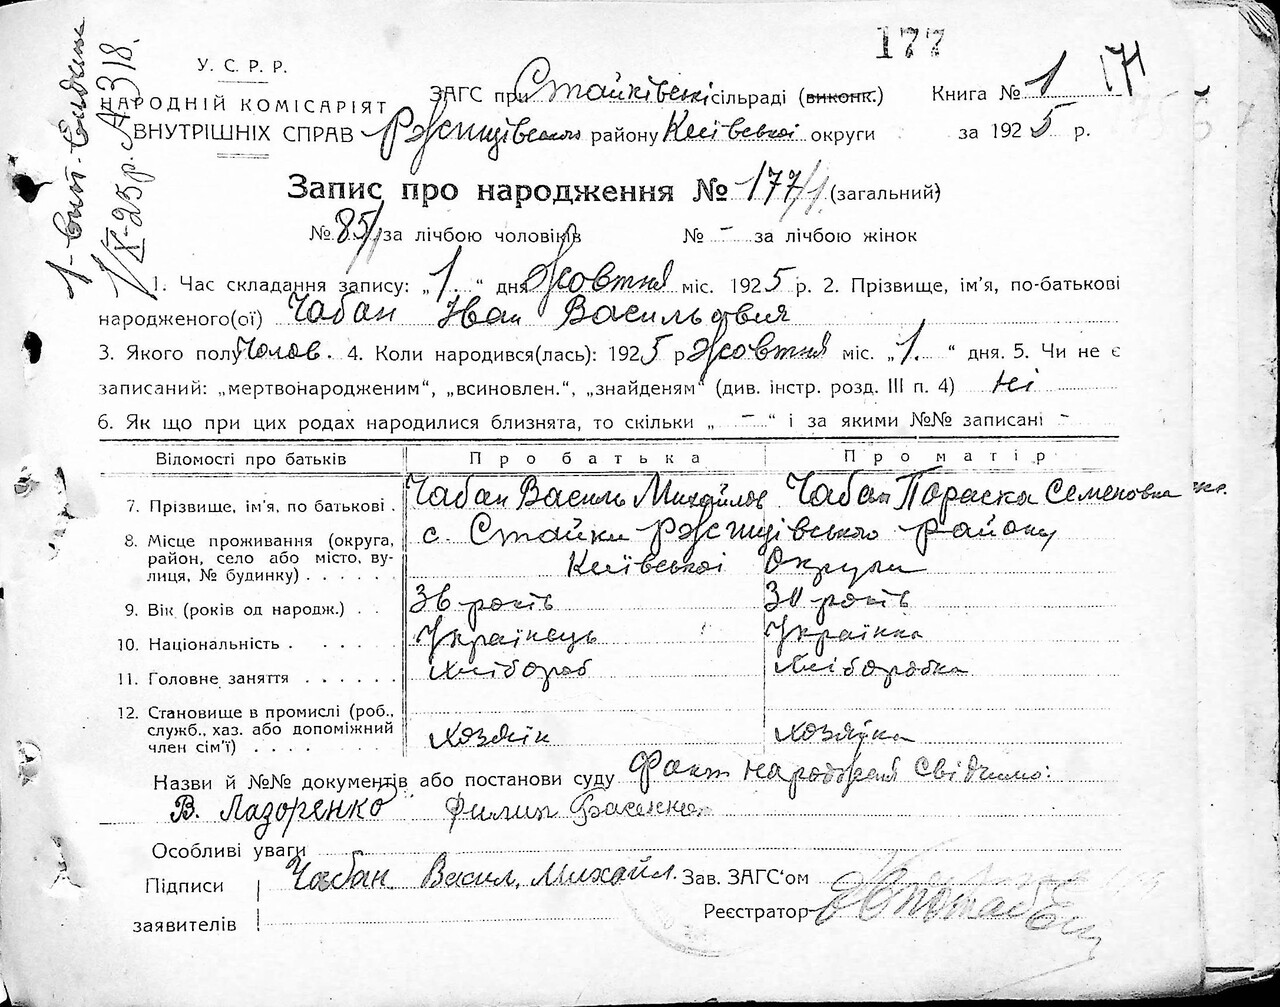 177
171
У. С. Р. Р.
НАРОДНІЙ КОМІСАРІЯТ
ВНУТРІШНІХ СПРАВ
ЗАГС при Стайківські сільраді (виконк.) Книга № 1
Ржищівського району Київської округи за 1925 р.
Запис про народження № 177/1 (загальний)
№ 85/1 за лічбою чоловіків № - за лічбою жінок
1. Час складання запису: „1.“ дня Жовтня міс. 1925 р. 2. Прізвище, ім'я, по-батькові
народженого(ої) Чабан Іван Васильович
3. Якого полу Чолов. 4. Коли народився(лась): 1925 р Жовтня міс. „1.“ дня. 5. Чи не є
записаний: „мертвонародженим“, „всиновлен.“, „знайденям“ (див. інстр. розд. III п. 4) ні
6. Як що при цих родах народилися близнята, то скільки „-“ і за якими №№ записані -
Відомості про батьків Про батька Про матір
7. Прізвище, ім'я, по батькові . Чабан Василь Михайлов Чабан Параска Семеновна
8. Місце проживання (округа, район, село або місто, ву-
лиця, № будинку) . . . . . с. Стайки Ржищівського району
Київської Округи
9. Вік (років од народж.) . . 36 років 30 років
10. Національність . . . . . . Українець Українка
11. Головне заняття . . . . . . Хлібороб Хлиборобка
12. Становище в промислі (роб.,
служб., хаз. або допоміжний
член сім'ї) . . . . . Хозяїн хозяйка
Назви й №№ документів або постанови суду Факт народження свідчимо:
В. Лазоренко Филип
Особливі уваги
Підписи
заявителів
Чабан Васил. Михайл.
Зав. ЗАГС'ом
Реєстратор